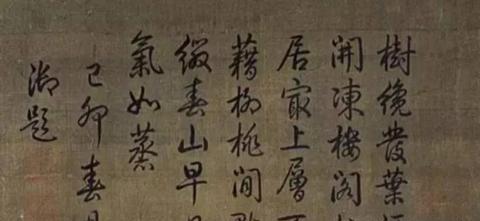 樹纔發葉
開凍樓閣
居家上層
藉柳桃閒
綴春山早
氣如蒸
己卯春
御題